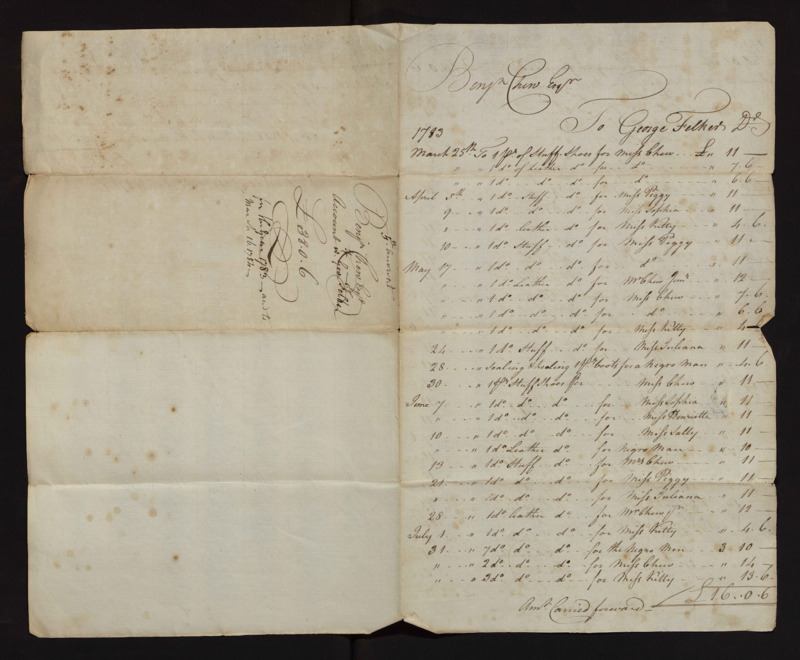 Benjn. Chew Esqr
To George Felker Dr
1783
March 25th To 1 Pr of Stuff Shoes for Miss Chew £ " 11 —
" " 1 do of Leather do for do " 7.6
" " 1 do do do for do " 6.6
April 5th " 1 do Stuff do for Miss Peggy " 11 —
9 " 1 do do do for Miss Sophia " 11 —
" " 1 do Leather do for Miss Kitty " 4.6.
10 " 1 do Stuff do for Miss Peggy " 11 —
May 17 " 1 do do do for do " 11 —
" 1 do Leather do for Mr Chew Junr " 12 —
" 1 do do do for Miss Chew " 7.6.
" 1 do do do for do " 6.6
" 1 do do do for Miss Kitty " 4 —
24 " 1 do Stuff do for Miss Juliana " 11 —
28 " Soaling 1 Pr boots for a Negro Man " 4.6
30 " 1 Pr Stuff Shoes for Miss Chew " 11 —
June 7 " 1 do do do for Miss Sophia " 11
" " 1 do do do for Miss Henrietta " 11 —
10 " 1 do do do for Miss Sally " 11 —
" " 1 do Leather do for Negro Man " 10 —
13 " 1 do Stuff do for Mrs Chew " 11 —
21 " 1 do do do for Miss Peggy " 11 —
" " do do do for Miss Juliana " 11
28 " 1 do Leather do for Mr Chew Jr " 12 —
July 1 " 1 do do do for Miss Kitty " 4.6.
31 " 7 do do do for the Negro Men 3 10 —
" " 2 do do do for Miss Chew " 14 —
" " 3 do do do for Miss Kitty " 13.6.
£ 16.0.6
Amt Carried forward
Benjn Chew Esqr
Account
£ 38.0.6
in the year 1783 and to
March 16. 1784